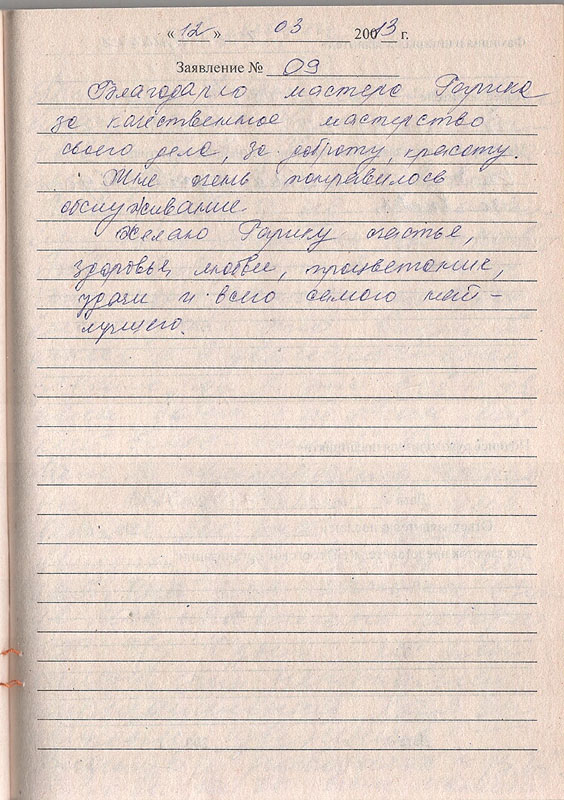 « 12 » 03 2013 г.
Заявление № 09
Благодарю мастера Гарика
за качественное мастерство
своего дела, за доброту, красоту.
Мне очень понравилось
обслуживание
Желаю Гарику счастье,
здоровья, любви, процветание,
удачи и всего самого наи-
лучшего.